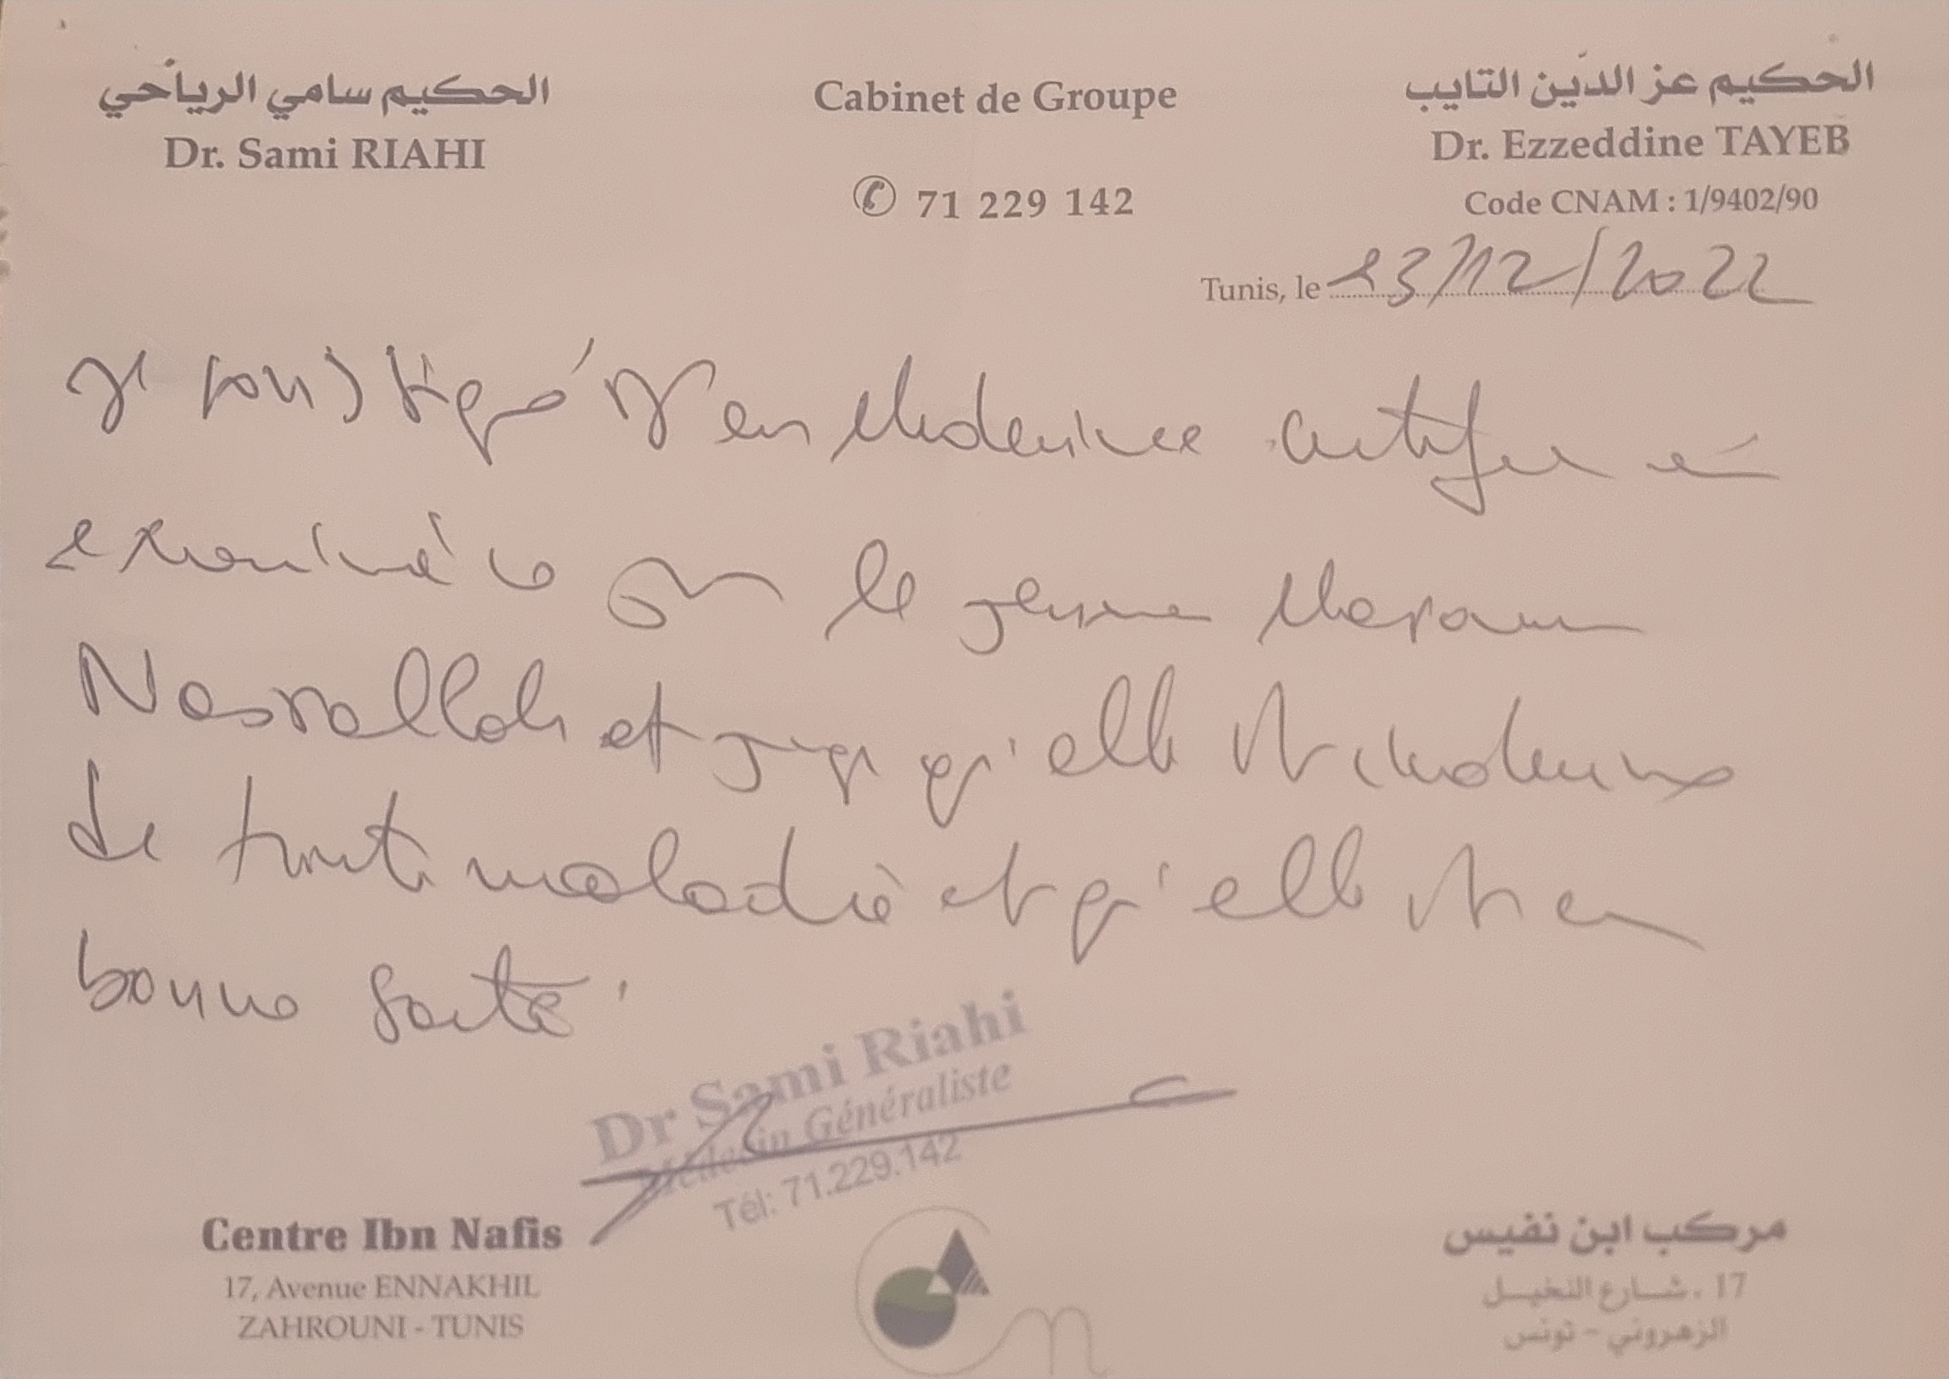 الحكيم سامي الرياحي
Dr. Sami RIAHI
Cabinet de Groupe
✆ 71 229 142
الحكيم عز الدّين التايب
Dr. Ezzeddine TAYEB
Code CNAM : 1/9402/90
Tunis, le 23/12/2022
Je soussigné Dr en Médecine certifie
examiné ce la jeune
Nasrallah et juge qu'elle est indemne
de toute maladie et qu'elle est en
bonne santé.
Dr Sami Riahi
Médecin Généraliste
Tél: 71.229.142
Centre Ibn Nafis
17, Avenue ENNAKHIL
ZAHROUNI - TUNIS
مركب ابن نفيس
17 ، شارع النخيل
الزهروني - تونس